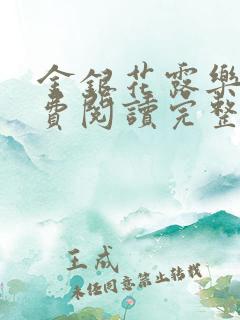 金銀花露樂
費閱讀完整
王成
未经同意禁止转载